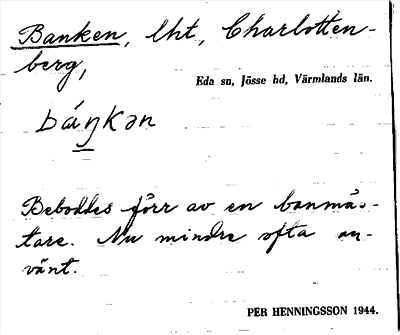 Banken, lht, Charlotten-
berg,
Eda sn, Jösse hd, Värmlands län.
báŋkən
Beboddes förr av en banmäs-
tare. Nu mindre ofta an-
vänt.
PER HENNINGSSON 1944.